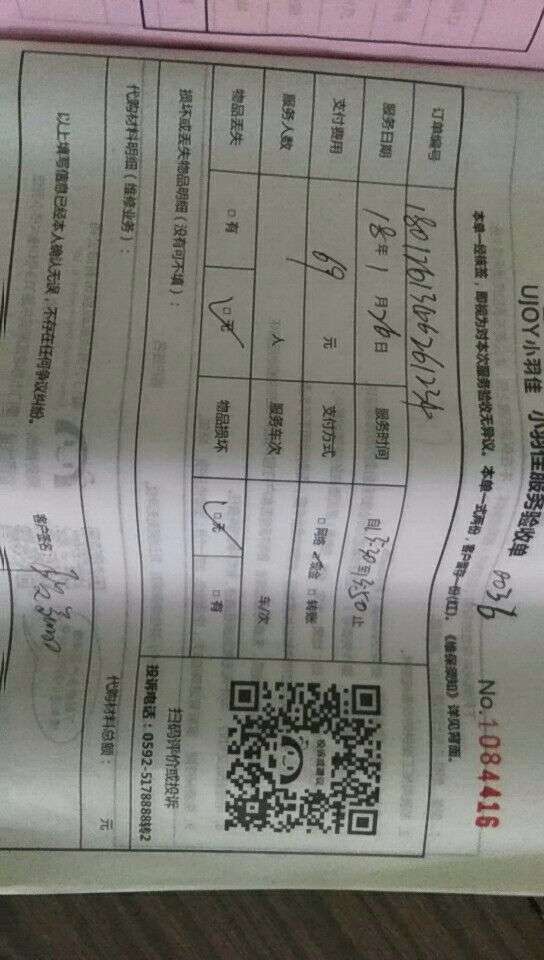 UJOY小羽佳 小羽佳服务验收单 0036 No.1084416
本单一经核签，即视为对本次服务验收无异议。本单一式两份，客户留存一份(红)，《维保须知》详见背面。
订单编号
服务日期 18年 1月26日 服务时间 自 至1350止
支付费用 69 元 支付方式 □网络 ☑现金 □转账
服务人数 人 服务车次 车/次
物品丢失 □有 ☑无 物品损坏 ☑无 □有
扫码评价或投诉
投诉电话：0592-5178888转2
投诉或建议
损坏或丢失物品明细（没有可不填）：
代购材料明细（维修业务）： 代购材料总额： 元
以上填写信息已经本人确认无误，不存在任何争议纠纷。 客户签名：